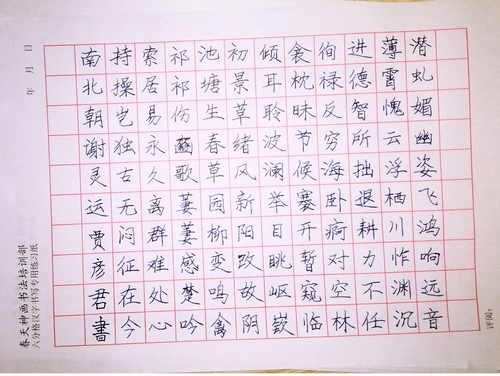 潜虬媚幽姿飞鸿响远音
薄霄愧云浮栖川怍渊沉
进德智所拙退耕力不任
徇禄反穷海卧痾对空林
衾枕昧节候褰开暂窥临
倾耳聆波澜举目眺岖嵚
初景草绪风新阳改故阴
池塘生春草园柳变鸣禽
祁祁伤豳歌萋萋感楚吟
索居易永久离群难处心
持操岂独古无闷征在今
南北朝谢灵运贾彦君書
春天神画书法培训部
六分格汉字书写专用练习纸
年 月 日
评阅：